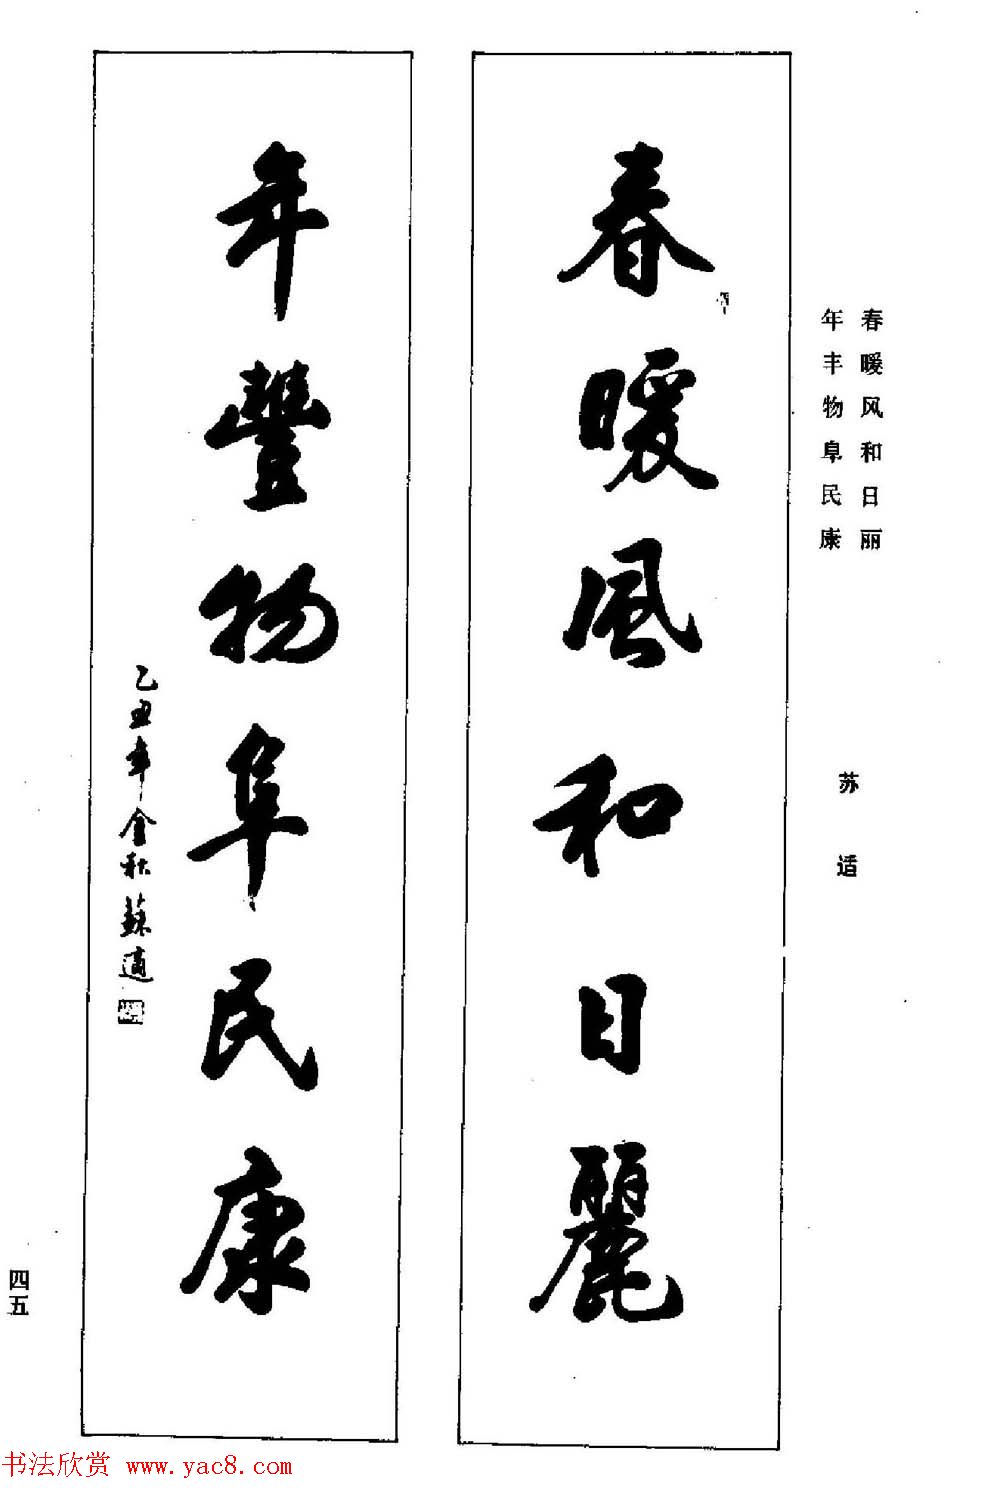 春暖风和日丽
年丰物阜民康
苏适
春暖風和日麗
年豐物阜民康
乙丑年金秋蘇適
四五
书法欣赏 www.yac8.com